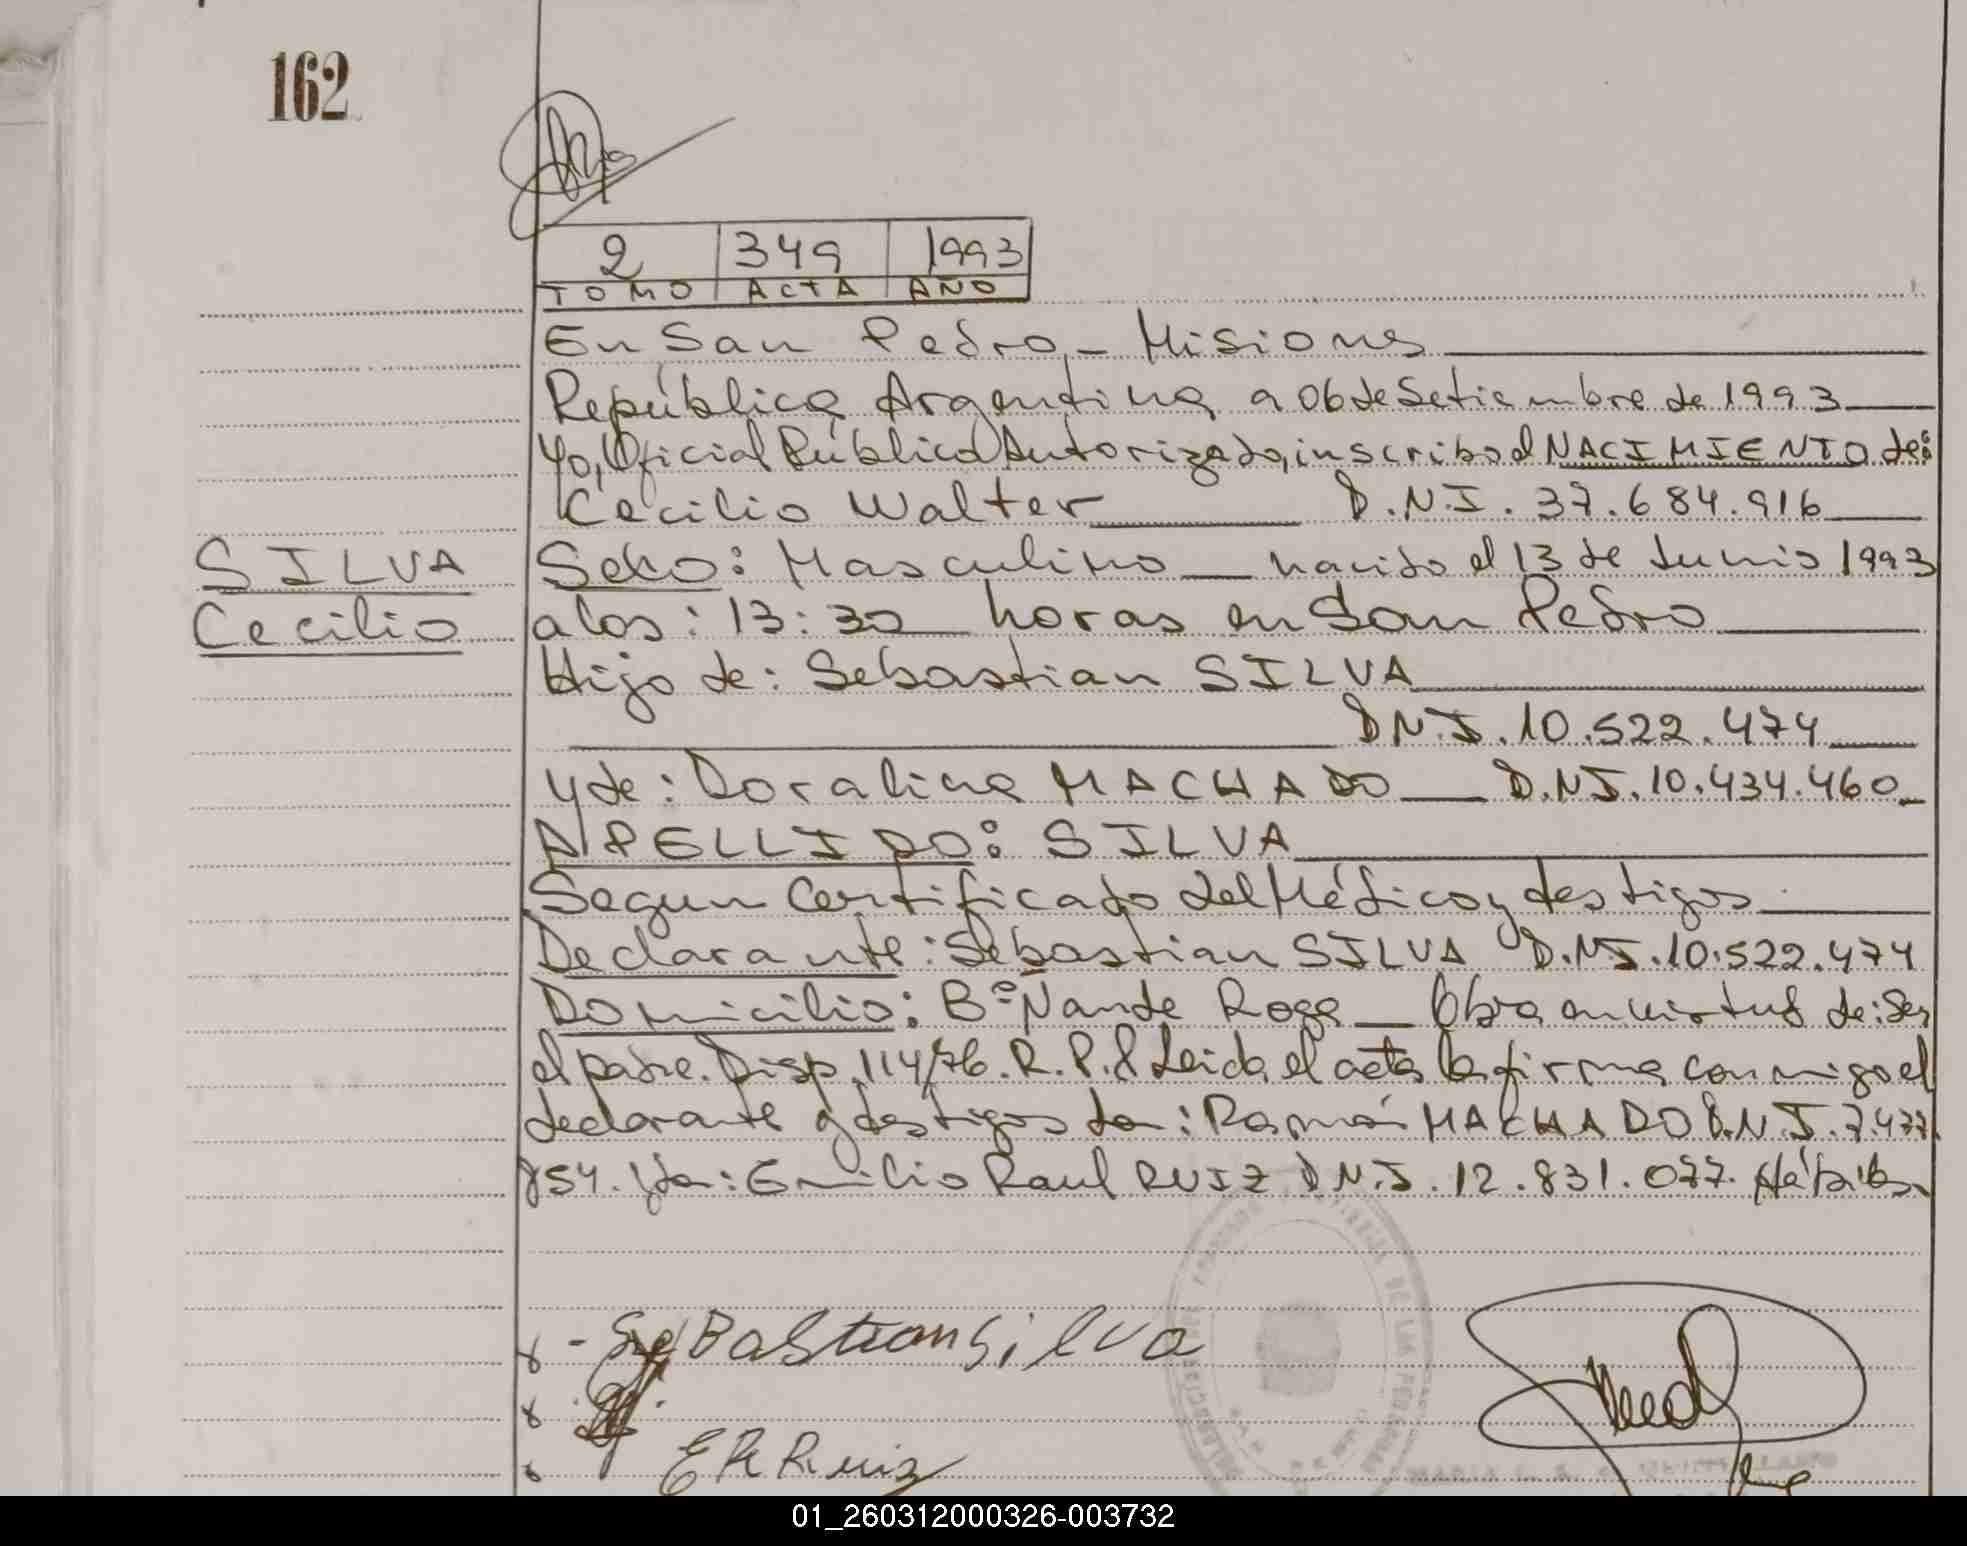 162
2 349 1993
TOMO ACTA AÑO
En San Pedro - Misiones
República Argentina a 06 de Setiembre de 1993
Yo, Oficial Público Autorizado, inscribo el NACIMIENTO de:
Cecilio Walter D.N.I. 37.684.916
SILVA
Cecilio
Sexo: Masculino nacido el 13 de Junio 1993
a las: 13:30 horas en San Pedro
Hijo de: Sebastian SILVA
D.N.I. 10.522.474
y de: Doralina MACHADO D.N.I. 10.434.460
APELLIDO: SILVA
Segun Certificado del Médico y testigos
Declarante: Sebastian SILVA D.N.I. 10.522.474
Domicilio: Bº Ñande Roga Obra en virtud de: Ser
el padre. Disp. 114/76. R.P. Leida el acta la firma conmigo el
declarante y testigos Ramón MACHADO D.N.I. 7.477.
854. Emilio Raul RUIZ D.N.I. 12.831.077. Hábiles
Sebastian Silva
E R Ruiz
01_260312000326-003732